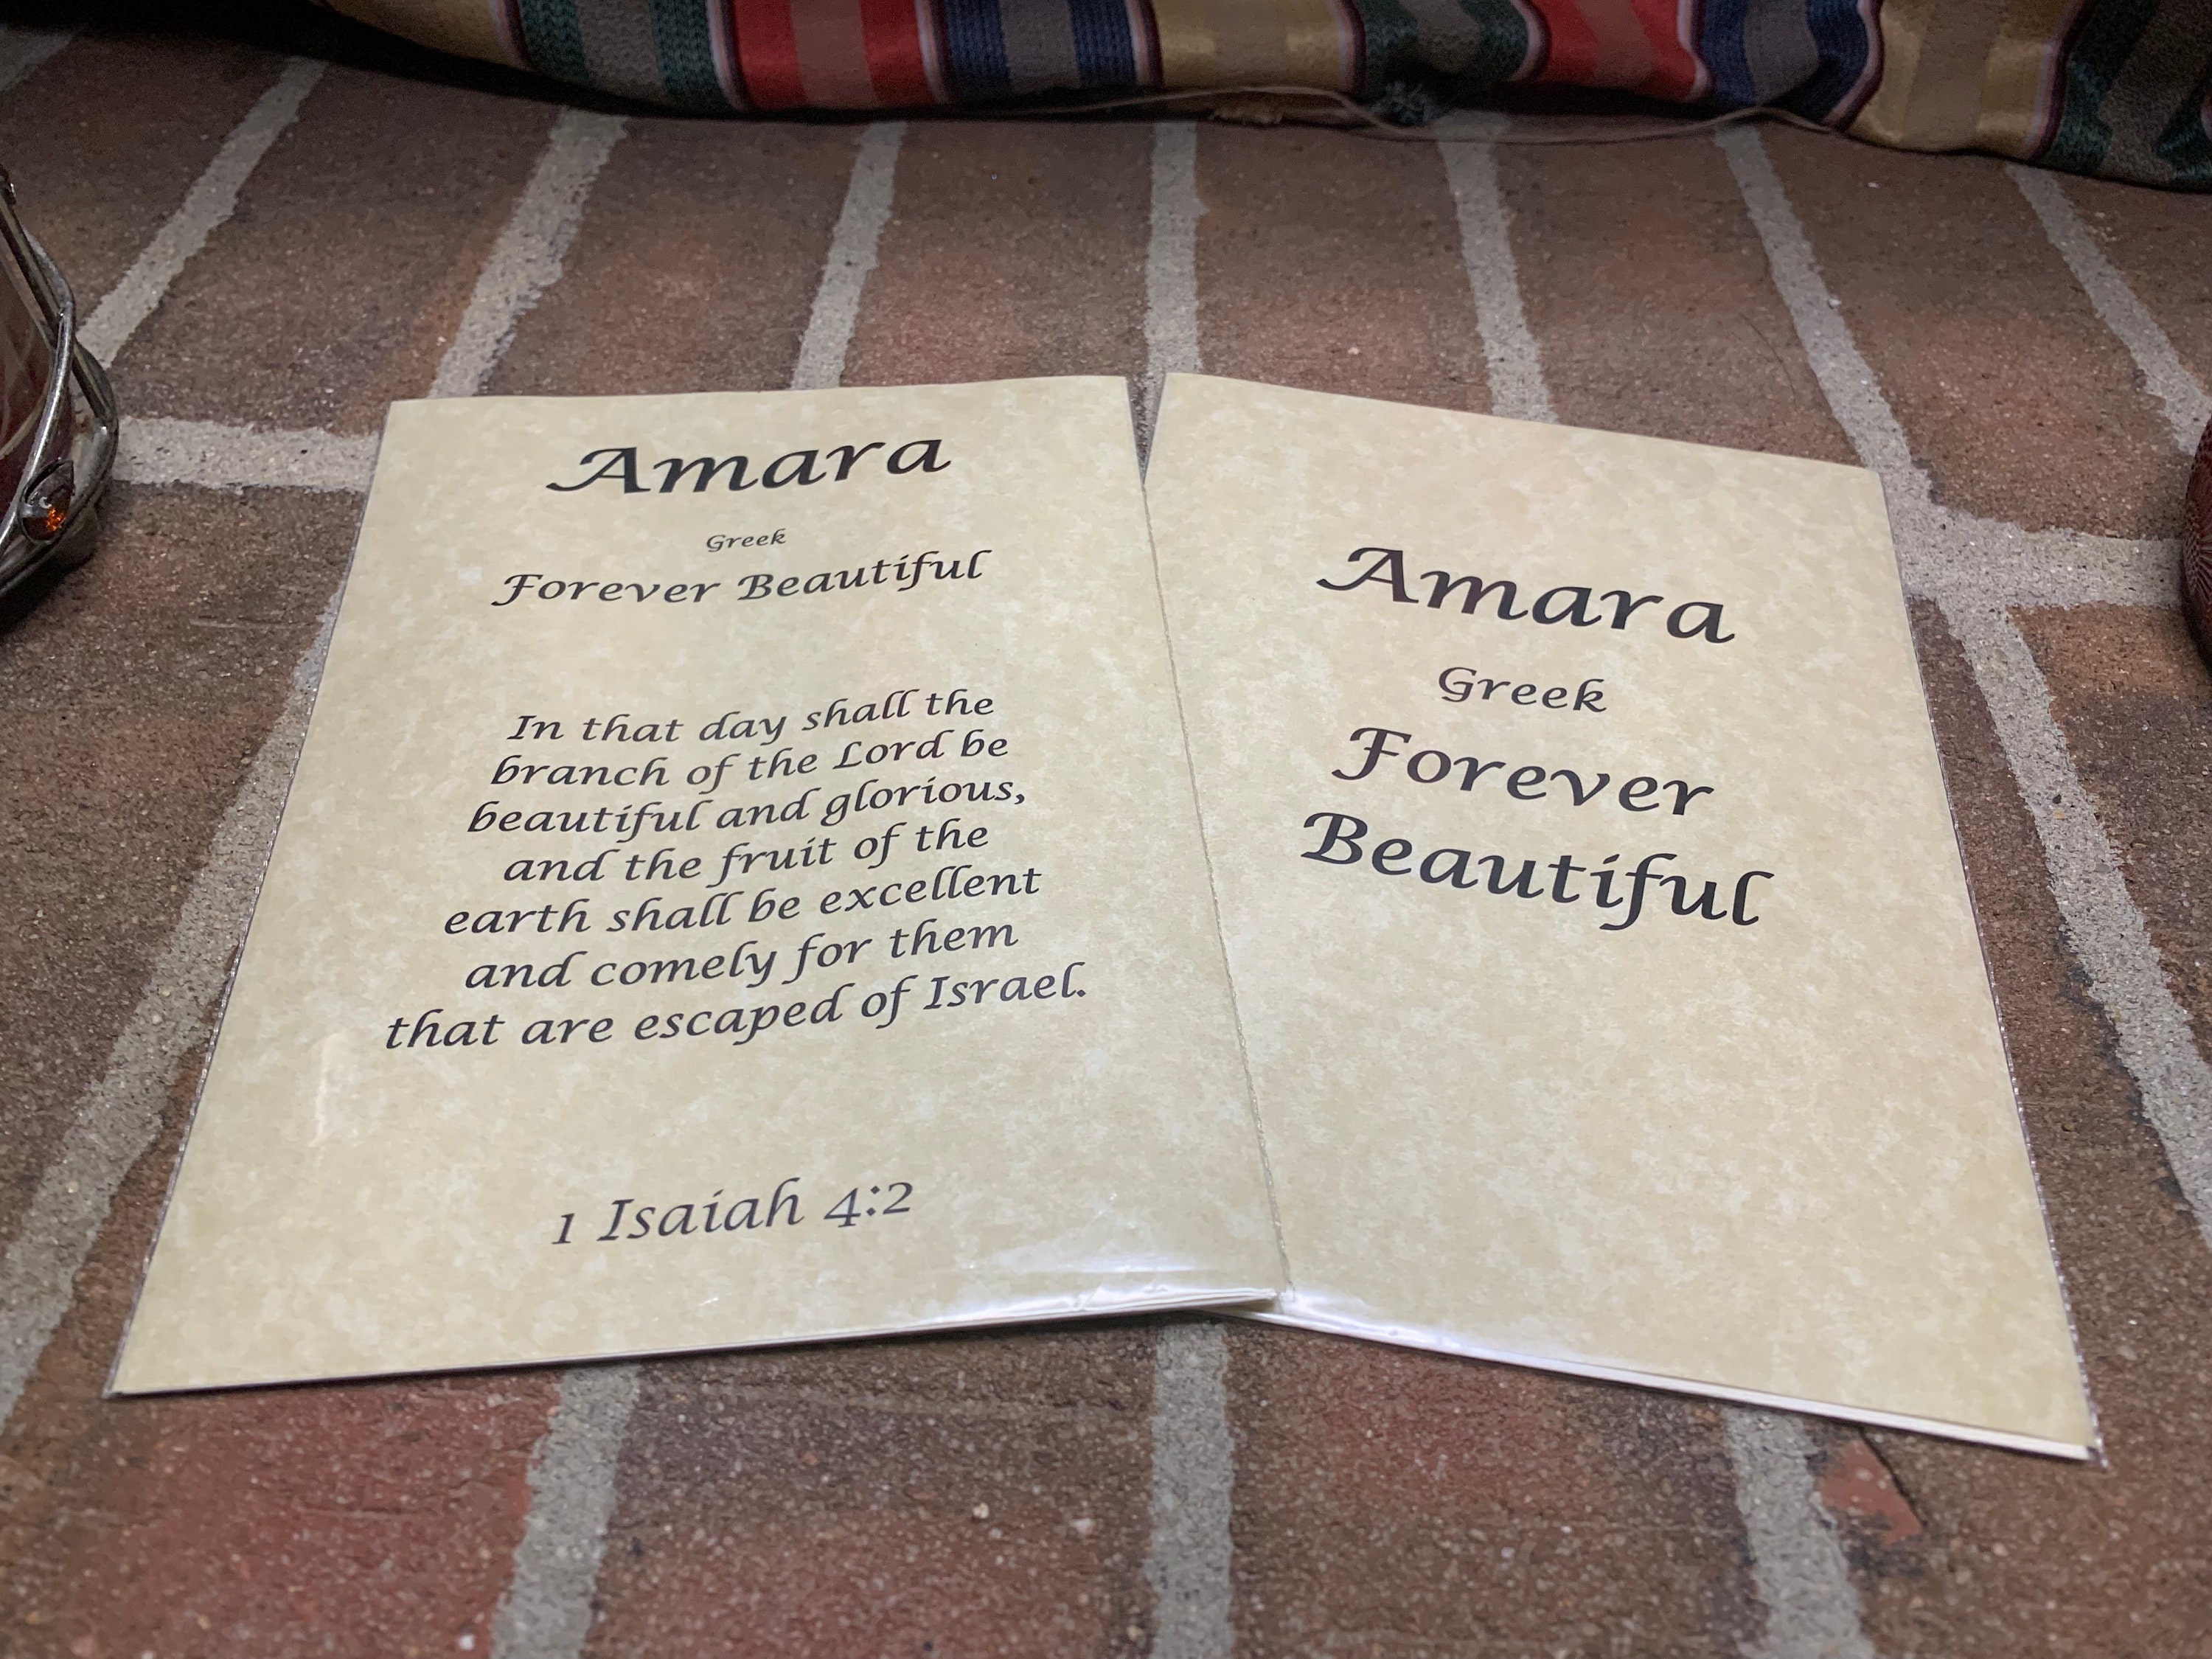 Amara
Greek
Forever Beautiful
In that day shall the
branch of the Lord be
beautiful and glorious,
and the fruit of the
earth shall be excellent
and comely for them
that are escaped of Israel.
1 Isaiah 4:2
Amara
Greek
Forever
Beautiful